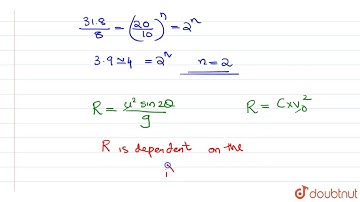 31.8/8 = (20/10)^n = 2^n
3.9 ≈ 4 = 2^n n = 2
R = u² sin 2θ / g R = C x v₀²
R is dependent on the
doubtnut